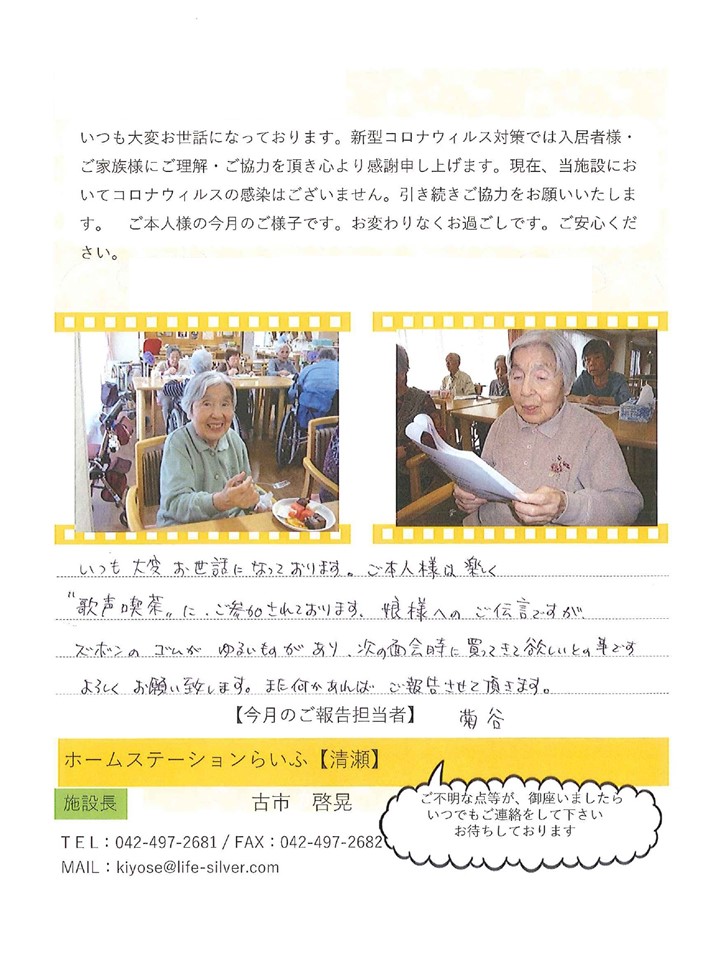 いつも大変お世話になっております。新型コロナウィルス対策では入居者様・
ご家族様にご理解・ご協力を頂き心より感謝申し上げます。現在、当施設にお
いてコロナウィルスの感染はございません。引き続きご協力をお願いいたしま
す。　ご本人様の今月のご様子です。お変わりなくお過ごしです。ご安心くだ
さい。
いつも 大変 お世話になっております。ご本人様は 楽しく
"歌声喫茶" に、ご参加されております、娘様への ご伝言ですが、
ズボンの ゴムが ゆるいものがあり、次の面会時に買ってきて欲しいとの事です
よろしく お願い致します。また何かあれば ご報告させて頂きます。
【今月のご報告担当者】　菊谷
ホームステーションらいふ【清瀬】
施設長　古市　啓晃
ＴＥＬ：042-497-2681 / FAX：042-497-2682
MAIL：kiyose@life-silver.com
ご不明な点等が、御座いましたら
いつでもご連絡をして下さい
お待ちしております